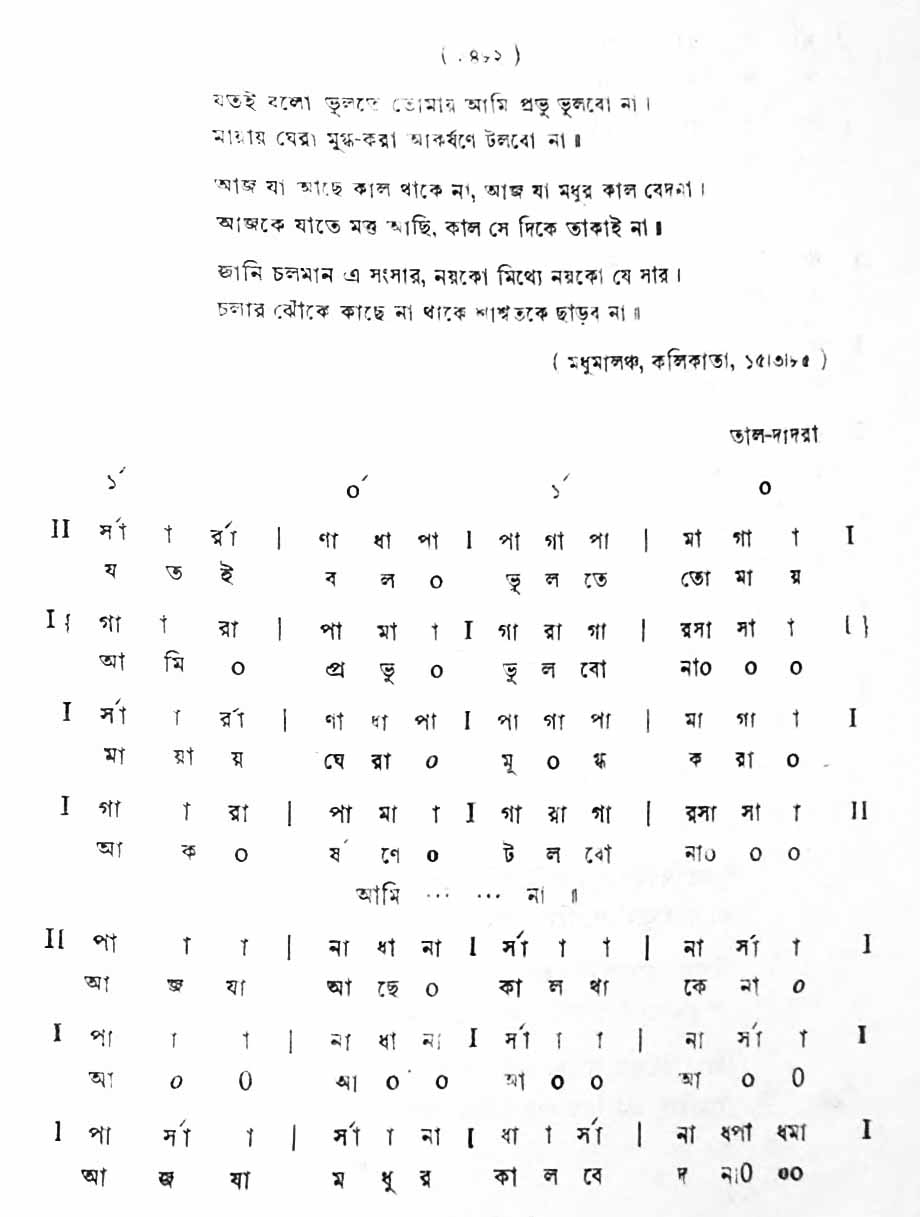 ( ৪৮২ )
যতই বলো ভুলতে তোমায় আমি প্রভু ভুলবো না ।
মায়ায় ঘেরা মুগ্ধ-করা আকর্ষণে টলবো না ॥
আজ যা আছে কাল থাকে না, আজ যা মধুর কাল বেদনা ।
আজকে যাতে মত্ত আছি, কাল সে দিকে তাকাই না ॥
জানি চলমান এ সংসার, নয়কো মিথ্যে নয়কো যে সার ।
চলার ঝোঁকে কাছে না থাকে শাশ্বতকে ছাড়ব না ॥
( মধুমালঞ্চ, কলিকাতা, ১৫।৩।৮৫ )
তাল-দাদরা
১´ ০´ ১´ ০
II র্সা া র্রা | ণা ধা পা I পা গা পা | মা গা া I
য ত ই ব ল ০ ভু ল তে তো মা য়
I { গা া রা | পা মা া I গা রা গা | রসা সা া { }
আ মি ০ প্র ভু ০ ভু ল বো না০ ০ ০
I র্সা া র্রা | ণা ধা পা I পা গা পা | মা গা া I
মা য়া য় ঘে রা ০ মু ০ গ্ধ ক রা ০
I গা া রা | পা মা া I গা রা গা | রসা সা া II
আ ক ০ র্ষ ণে ০ ট ল বো না০ ০ ০
আমি ... ... না ॥
II পা া া | না ধা না I র্সা া া | না র্সা া I
আ জ যা আ ছে ০ কা ল থা কে না ০
I পা া া | না ধা না I র্সা া া | না র্সা া I
আ ০ ০ আ ০ ০ আ ০ ০ আ ০ ০
I পা র্সা া | র্সা া না I ধা া র্সা | না ধপা ধমা I
আ জ যা ম ধু র কা ল বে দ না০ ০০